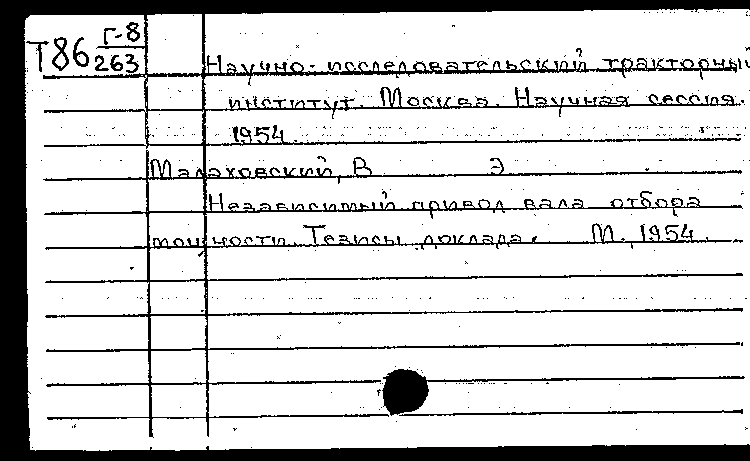 Т86 Г-8
263
Научно-исследовательский тракторный
институт. Москва. Научная сессия.
1954
Малаховский, В Э
Независимый привод вала отбора
мощности. Тезисы доклада. М., 1954.